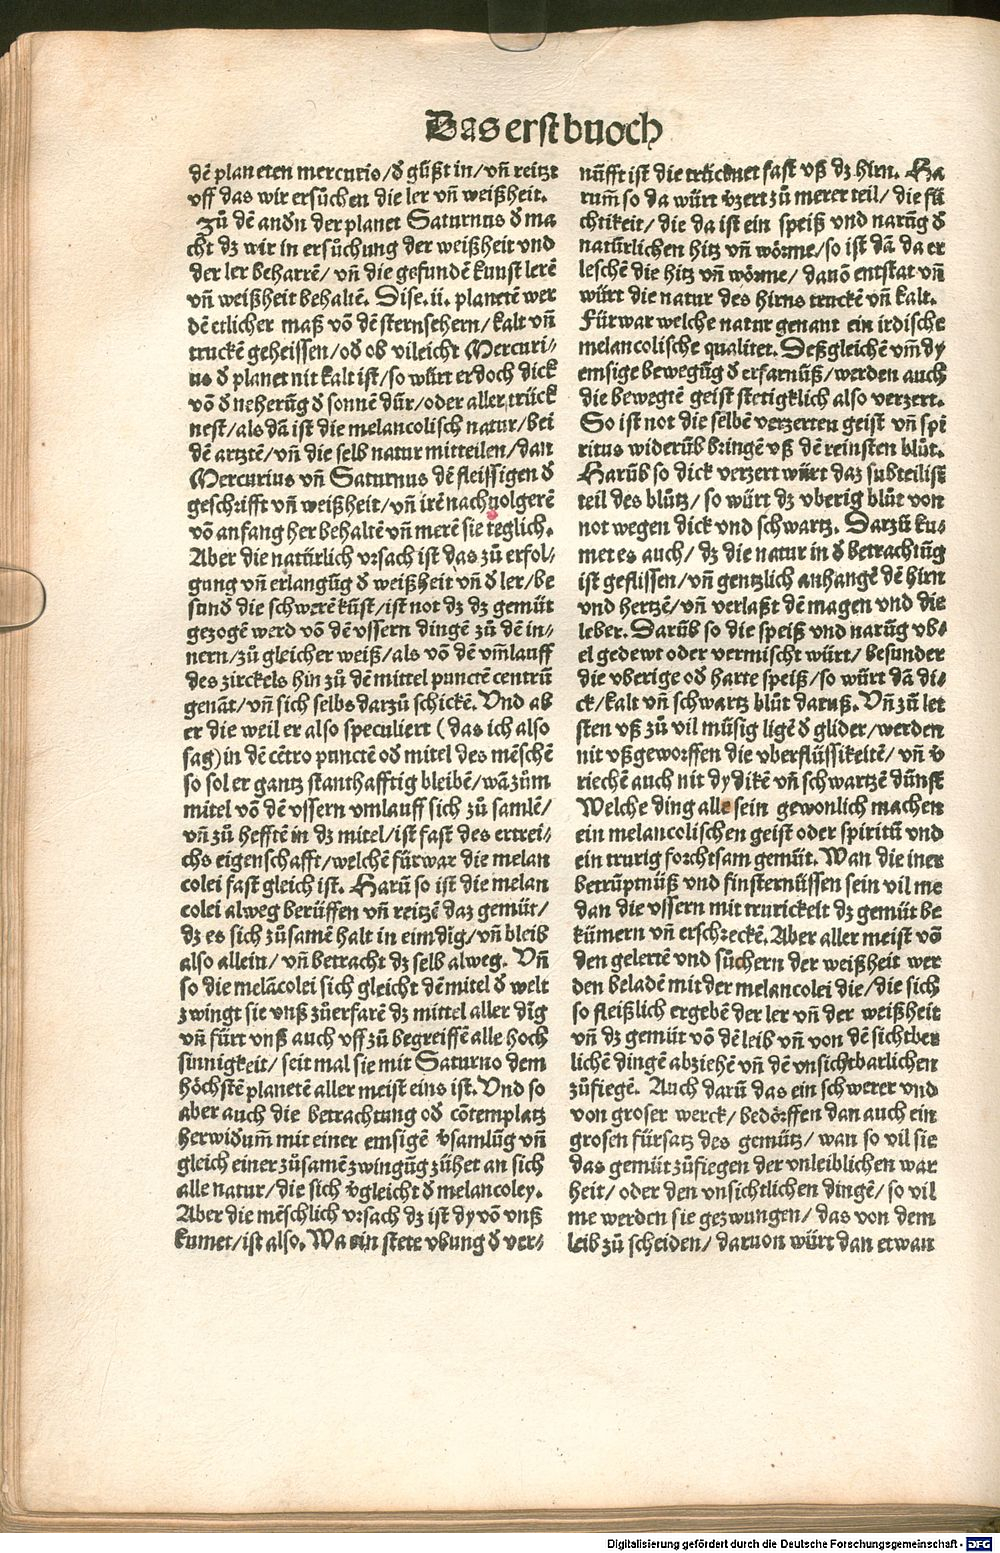 Das erst buoch
dē planeten mercurio/ď güßt in/vñ reitzt
vff das wir ersůchen die ler vñ weißheit.
Zů dē andn der planet Saturnus ď ma
cht dz wir in ersůchung der weißheit vnd
der ler beharrē/vñ die gefundē kunst lerē
vñ weißheit behaltē. Dise.ii. planetē wer
dē etlicher maß vō dē sternsehern/kalt vñ
truckē geheissen/oď ob vileicht Mercuri⸗
us ď planet nit kalt ist/so würt er doch dick
vō ď neherūg ď sonnē dür/oder aller trück
nest/als dā ist die melancolisch natur/bei
dē artztē/vñ die selb natur mitteilen/dan
Mercurius vñ Saturnus dē fleissigen ď
geschrifft vñ weißheit/vñ irē nachuolgerē
vō anfang her behaltē vñ merē sie teglich.
Aber die natürlich vrsach ist das zů erfol⸗
gung vñ erlangūg ď weißheit vñ ď ler/be
sunď die schwerē küst/ist not dz dz gemüt
gezogē werd vō dē vssern dingē zů dē in⸗
nern/zů gleicher weiß/als vō dē vm̄lauff
des zirckels hin zů dē mittel punctē centrū
genāt/vñ sich selbs darzů schickē. Vnd ab
er die weil er also speculiert (das ich also
sag) in dē cētro punctē oď mitel des mēschē
so sol er gantz stanthafftig bleibē/wā zům
mitel vō dē vssern vmlauff sich zů samlē/
vñ zů hefftē in dz mitel/ist fast des ertrei⸗
chs eigenschafft/welchē fürwar die melan
colei fast gleich ist. Harū so ist die melan
colei alweg berüffen vñ reitzē daz gemüt/
dz es sich zůsamē halt in eim dīg/vñ bleib
also allein/vñ betracht dz selb alweg. Vñ
so die melācolei sich gleicht dē mitel ď welt
zwingt sie vnß zů erfarē dz mittel aller dīg
vñ fürt vnß auch vff zů begreiffē alle hoch
sinnigkeit/seit mal sie mit Saturno dem
höchstē planetē aller meist eins ist. Vnd so
aber auch die betrachtung oď cōtemplatz
herwiďum̄ mit einer emsigē v̄samlūg vñ
gleich einer zůsamē zwingūg zühet an sich
alle natur/die sich v̄gleicht ď melancoley.
Aber die mēschlich vrsach dz ist dy vō vnß
kumet/ist also. Wa ein stete vbung ď ver⸗
nūfft ist die trücknet fast vß dz hirn. Ha
rum̄ so da würt v̄zert zů merer teil/die fü
chtikeit/die da ist ein speiß vnd narūg ď
natürlichen hitz vñ wörme/so ist dā da er
leschē die hitz vñ wörme/dauō entstat vñ
würt die natur des hirns truckē vñ kalt.
Fürwar welche natur genant ein irdische
melancolische qualitet. Deßgleichē vm̄ dy
emsige bewegūg ď erfarnüß/werden auch
die bewegtē geist stetigklich also verzert.
So ist not die selbē verzerten geist vñ spi
ritus widerūb bringē vß dē reinsten blůt.
Harūb so dick verzert würt daz subteilist
teil des blůtz/so würt dz vberig blůt von
not wegen dick vnd schwartz. Darzů ku⸗
met es auch/dz die natur in ď betrachtūg
ist geflissen/vñ gentzlich anhangē dē hirn
vnd hertzē/vñ verlaßt dē magen vnd die
leber. Darūb so die speiß vnd narūg vb⸗
el gedewt oder vermischt würt/besunder
die vberige oď harte speiß/so würt dā di⸗
ck/kalt vñ schwartz blůt daruß. Vñ zů let
sten vß zů vil müsig ligē ď glider/werden
nit vßgeworffen die vberflüssikeitē/vñ v̄
riechē auch nit dy dikē vñ schwartzē dünst
Welche ding alle sein gewonlich machen
ein melancolischen geist oder spiritū vnd
ein trurig forchtsam gemüt. Wan die iner
betrüptnüß vnd finsternüssen sein vil me
dan die vssern mit trurickeit dz gemüt be
kümern vñ erschreckē. Aber aller meist vō
den gelertē vnd sůchern der weißheit wer
den beladē mit der melancolei die/die sich
so fleißlich ergebē der ler vñ der weißheit
vñ dz gemüt vō dē leib vñ von dē sichtber
lichē dingē abziehē vñ dē vnsichtbarlichen
zůfiegē. Auch darū das ein schwerer vnd
von groser werck/bedörffen dan auch ein
grosen fürsatz des gemütz/wan so vil sie
das gemüt zůfiegen der vnleiblichen war
heit/oder den vnsichtlichen dingē/so vil
me werden sie gezwungen/das von dem
leib zů scheiden/daruon würt dan etwan
Digitalisierung gefördert durch die Deutsche Forschungsgemeinschaft - DFG